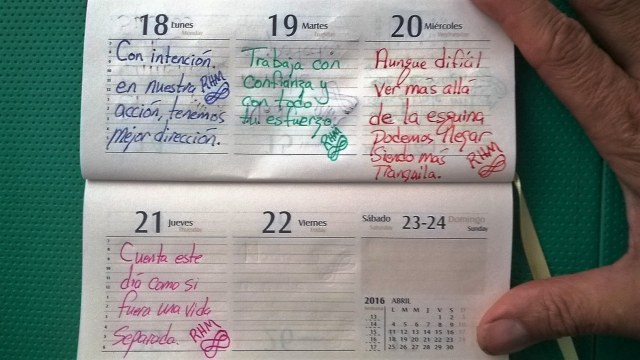 18 Lunes
Monday
Con intención.
en nuestra RHM
acción, tenemos
Mejor dirección.
19 Martes
Tuesday
Trabaja con
confianza y
con todo
tu esfuerzo.
RHM
20 Miércoles
Wednesday
Aunque dificil
ver más allá
de la esquina
Podemos llegar
Siendo más RHM
Tranquila.
21 Jueves
Thursday
Cuenta este
día como si
fuera una vida
Separada. RHM
22 Viernes
Friday
Sábado 23-24 Domingo
Saturday Sunday
2016 ABRIL
L M M J V S D
13 1 2 3
14 4 5 6 7 8 9 10
15 11 12 13 14 15 16 17
16 18 19 20 21 22 23 24
17 25 26 27 28 29 30